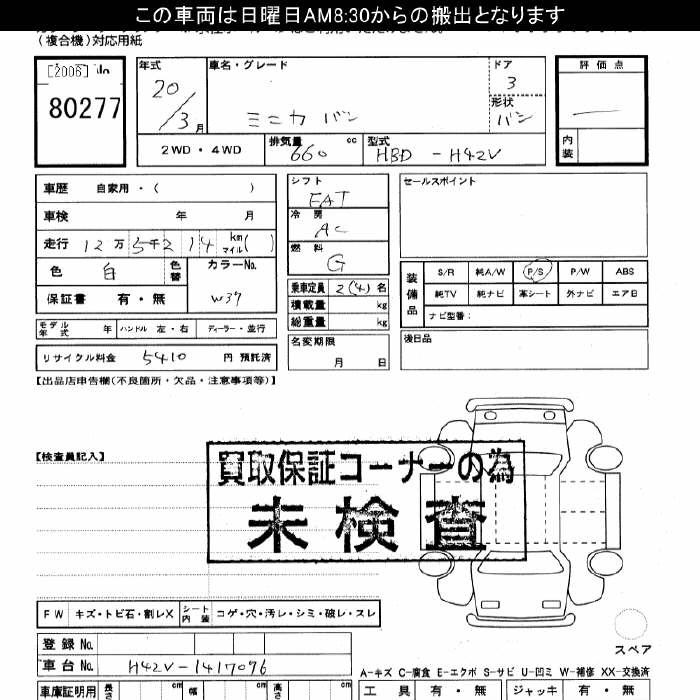 この車両は日曜日AM8:30からの搬出となります
(複合機)対応用紙
[2006] No
80277
年式
20/3月
車名・グレード
ミニカ バン
ドア
3
形状
バン
評価点
内装
2WD・4WD
排気量
660 cc
型式
HBD - H42V
車歴 自家用・( )
車検 年 月
走行 12万5千214 km マイル( )
色 白 色替
カラーNo.
W37
保証書 有・無
シフト
FAT
冷房
AC
燃料
G
乗車定員 2(4)名
積載量 kg
総重量 kg
名変期限
月 日
セールスポイント
装備品
S/R 純A/W P/S P/W ABS
純TV 純ナビ 革シート 外ナビ エアB
ナビ型番:
後日品
モデル年式 年 ハンドル 左・右 ディーラー・並行
リサイクル料金 5410 円 預託済
【出品店申告欄(不良箇所・欠品・注意事項等)】
【検査員記入】
買取保証コーナーの為
未検査
FW キズ・トビ石・割レX シート内装 コゲ・穴・汚レ・シミ・破レ・スレ
登録No.
車台No. H42V-1417096
スペア
A-キズ C-腐食 E-エクボ S-サビ U-凹ミ W-補修 XX-交換済
車庫証明用 長さ cm 幅 cm 高さ cm
工具 有・無 ジャッキ 有・無